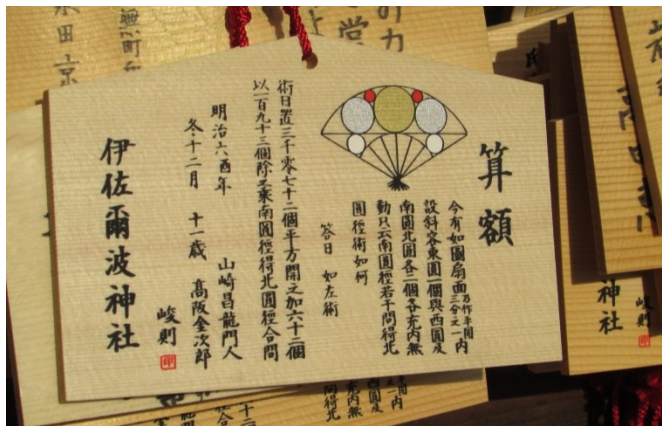 算額
今有如圖扇面乃作平圓三分之一内
設斜容東圓一個與西圓及
南圓北圓各二個各充内無
動只云南圓徑若干問得北
圓徑術如何
答曰 如左術
術曰置三千零七十二個平方開之加六十二個
以一百九十三個除之乗南圓徑得北圓徑合問
明治六酉年 山崎昌龍門人
冬十二月 十一歳 高阪金次郎
峻則 印
伊佐爾波神社
神社
峻則